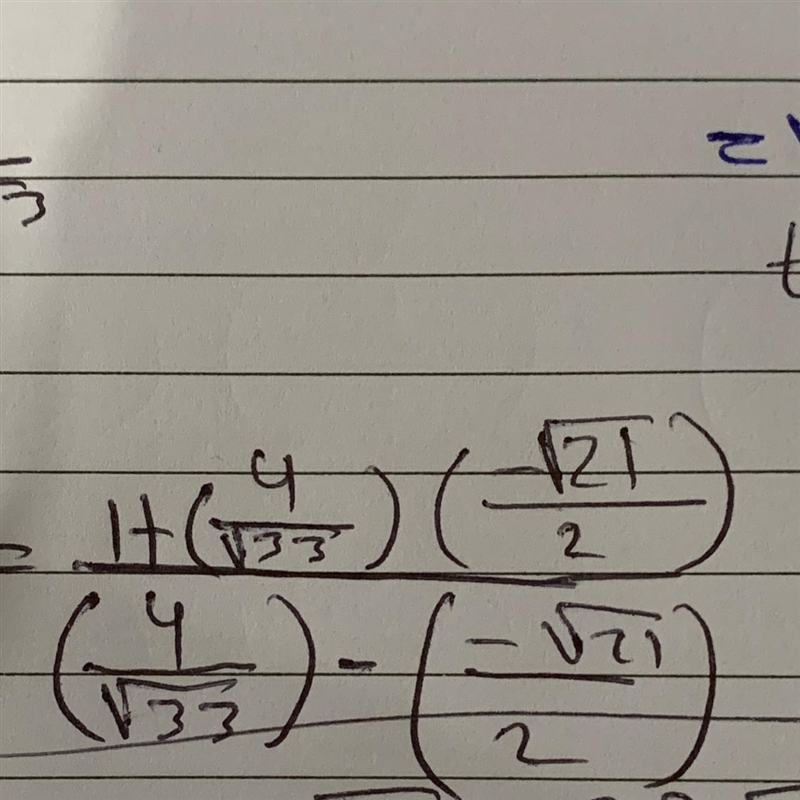 =
3
t
= 1+(4/√33)(-√21/2)
(4/√33) - (-√21/2)